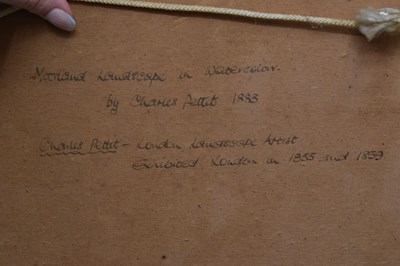 Moorland Landscape in Watercolor.
by Charles Pettit 1883
Charles Pettit - London Landscape Artist
Exhibited London in 1855 and 1859